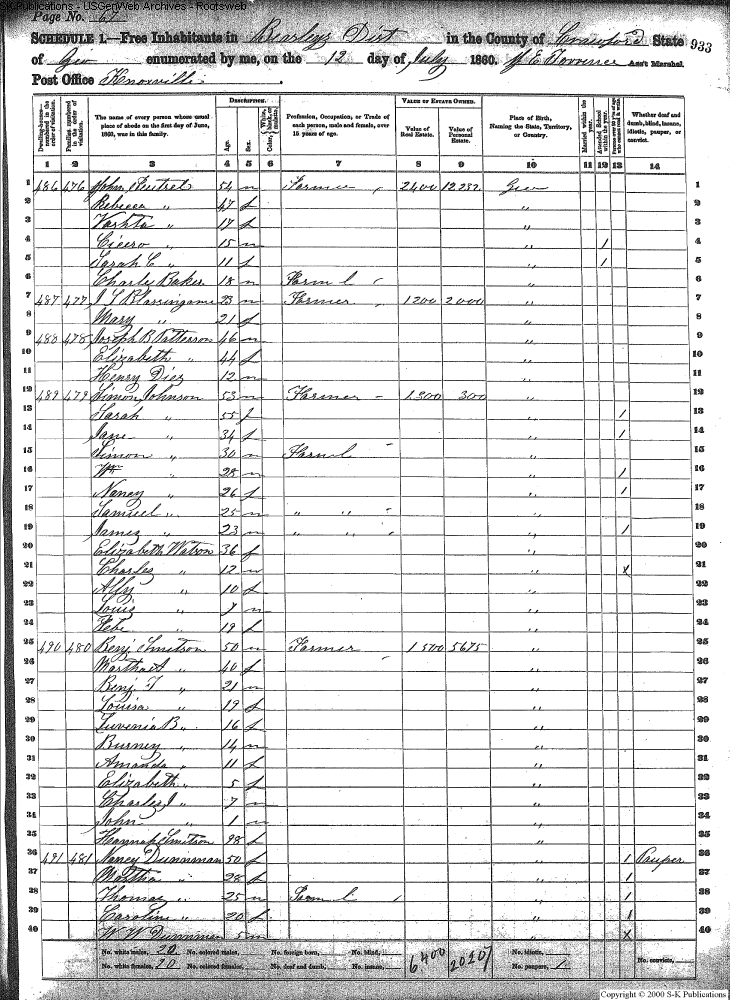 S-K Publications - USGenWeb Archives - Rootsweb
Page No. 67
SCHEDULE 1.—Free Inhabitants in Bearleyz Dist in the County of Crawford State 933
of Geo enumerated by me, on the 12 day of July 1860. Ass't Marshal.
Post Office Knoxville.
DESCRIPTION. VALUE OF ESTATE OWNED.
Dwelling-houses— numbered in the order of visitation. Families numbered in the order of visitation. The name of every person whose usual place of abode on the first day of June, 1860, was in this family. Age. Sex. Color, White, black, or mulatto. Profession, Occupation, or Trade of each person, male and female, over 15 years of age. Value of Real Estate. Value of Personal Estate. Place of Birth, Naming the State, Territory, or Country. Married within the year. Attended School within the year. Persons over 20 y'rs of age who cannot read & write. Whether deaf and dumb, blind, insane, idiotic, pauper, or convict.
1 2 3 4 5 6 7 8 9 10 11 12 13 14
1 486 476 John 54 m Farmer 2400 12,232 Geo 1
2 Rebecca " 47 f " 2
3 Vashta " 17 f " 3
4 Cicero " 15 m " 1 4
5 Sarah C " 11 f " 1 5
6 Charly Baker 18 m Farm L " 6
7 487 477 23 m Farmer 1200 2000 " 7
8 Mary " 21 f " 8
9 488 478 Joseph B Patterson 46 m " 9
10 Elizabeth " 44 f " 10
11 Henry Diez 12 m " 11
12 489 479 Simon Johnson 53 m Farmer 1,300 300 " 12
13 Sarah " 55 f " 1 13
14 Jane " 34 f " 1 14
15 Simon " 30 m Farm L " 15
16 Wm " 28 m " 1 16
17 Nancy " 26 f " 1 17
18 Samuel " 25 m " " " 18
19 James " 23 m " " " 1 19
20 Elizabeth Watson 36 f " 20
21 Charles " 12 m " X 21
22 Alfy " 10 f " 22
23 Louis " 7 m " 23
24 Febe " 19 f " 24
25 490 480 Benj Smitson 50 m Farmer 1500 5675 " 25
26 Martha A " 40 f " 26
27 Benj. T " 21 m " 27
28 Louisa " 19 f " 28
29 Luvenia B " 16 f " 29
30 Burney " 14 m " 30
31 Amanda " 11 f " 31
32 Elizabeth " 5 f " 32
33 Charles J " 7 m " 33
34 John " 1 m " 34
35 Hannah Smitson 98 f " 35
36 491 481 Nancy Dunniman 50 f " 1 Pauper 36
37 Martha " 28 f " 1 37
38 Thomas " 25 m Farm L " 1 38
39 Caroline " 20 f " 1 39
40 W W Dunniman 5 m " X 40
No. white males, 20 No. colored males, No. foreign born, No. blind, 6400 20207 No. idiotic, No. convicts,
No. white females, 20 No. colored females, No. deaf and dumb, No. insane, No. paupers, 1
Copyright © 2000 S-K Publications